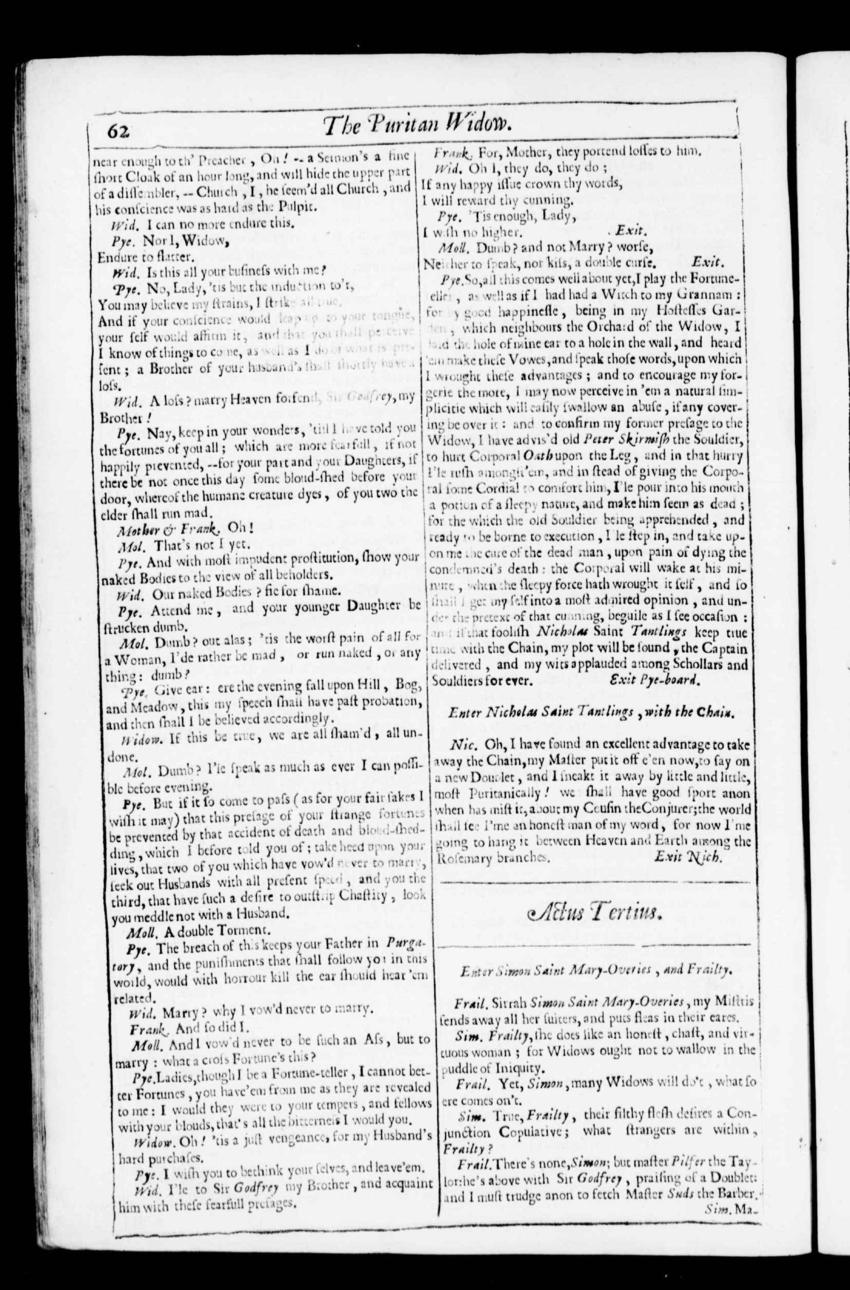 62
The Puritan Widow.
near enough to th' Preacher, Oh! -- a Sermon's a fine
ſhort Cloak of an hour long, and will hide the upper part
of a diſſembler, -- Church, I, he ſeem'd all Church, and
his conſcience was as hard as the Pulpit.
Wid. I can no more endure this.
Pye. Nor I, Widow,
Endure to flatter.
Wid. Is this all your buſineſs with me?
Pye. No, Lady, 'tis but the induction to't,
You may believe my ſtrains, I ſtrike all true,
And if your conſcience would leap up to your tongue,
your ſelf would affirm it, and that you ſhall perceive
I know of things to come, as well as I do of what is pre-
ſent; a Brother of your husband's ſhall ſhortly have a
loſs.
Wid. A loſs? marry Heaven forfend, Sir Godfrey, my
Brother!
Pye. Nay, keep in your wonders, 'till I have told you
the fortunes of you all; which are more fearfull, if not
happily prevented, --for your part and your Daughters, if
there be not once this day ſome bloud-ſhed before your
door, whereof the humane creature dyes, of you two the
elder ſhall run mad.
Mother & Frank. Oh!
Mol. That's not I yet.
Pye. And with moſt impudent proſtitution, ſhow your
naked Bodies to the view of all beholders.
Wid. Our naked Bodies? fie for ſhame.
Pye. Attend me, and your younger Daughter be
ſtrucken dumb.
Mol. Dumb? out alas; 'tis the worſt pain of all for
a Woman, I'de rather be mad, or run naked, or any
thing: dumb?
Pye. Give ear: ere the evening fall upon Hill, Bog,
and Meadow, this my ſpeech ſhall have paſt probation,
and then ſhall I be believed accordingly.
Widow. If this be true, we are all ſham'd, all un-
done.
Mol. Dumb? I'le ſpeak as much as ever I can poſſi-
ble before evening.
Pye. But if it ſo come to paſs (as for your fair ſakes I
wiſh it may) that this preſage of your ſtrange fortunes
be prevented by that accident of death and bloud-ſhed-
ding, which I before told you of; take heed upon your
lives, that two of you which have vow'd never to marry,
ſeek out Husbands with all preſent ſpeed, and you the
third, that have ſuch a deſire to outſtrip Chaſtity, look
you meddle not with a Husband.
Moll. A double Torment.
Pye. The breach of this keeps your Father in Purga-
tory, and the puniſhments that ſhall follow you in this
world, would with horrour kill the ear ſhould hear 'em
related.
Wid. Marry? why I vow'd never to marry.
Frank. And ſo did I.
Moll. And I vow'd never to be ſuch an Aſs, but to
marry: what a croſs Fortune's this?
Pye. Ladies, though I be a Fortune-teller, I cannot bet-
ter Fortunes, you have 'em from me as they are revealed
to me: I would they were to your tempers, and fellows
with your blouds, that's all the bitterneſs I would you.
Widow. Oh! 'tis a juſt vengeance, for my Husband's
hard purchaſes.
Pye. I wiſh you to bethink your ſelves, and leave 'em.
Wid. I'le to Sir Godfrey my Brother, and acquaint
him with theſe fearfull preſages.
Frank. For, Mother, they portend loſſes to him.
Wid. Oh I, they do, they do;
If any happy iſſue crown thy words,
I will reward thy cunning.
Pye. 'Tis enough, Lady,
I wiſh no higher. Exit.
Moll. Dumb? and not Marry? worſe,
Neither to ſpeak, nor kiſs, a double curſe. Exit.
Pye. So, all this comes well about yet, I play the Fortune-
teller, as well as if I had had a Witch to my Grannam:
for by good happineſſe, being in my Hoſteſſes Gar-
den, which neighbours the Orchard of the Widow, I
laid the hole of mine ear to a hole in the wall, and heard
'em make theſe Vowes, and ſpeak thoſe words, upon which
I wrought theſe advantages; and to encourage my for-
gerie the more, I may now perceive in 'em a natural ſim-
plicitie which will eaſily ſwallow an abuſe, if any cover-
ing be over it: and to confirm my former preſage to the
Widow, I have advis'd old Peter Skirmiſh the Souldier,
to hurt Corporal Oath upon the Leg, and in that hurry
I'le ruſh amongſt 'em, and in ſtead of giving the Corpo-
ral ſome Cordial to comfort him, I'le pour into his mouth
a potion of a ſleepy nature, and make him ſeem as dead;
for the which the old Souldier being apprehended, and
ready to be borne to execution, I'le ſtep in, and take up-
on me the cure of the dead man, upon pain of dying the
condemned's death: the Corporal will wake at his mi-
nute, when the ſleepy force hath wrought it ſelf, and ſo
ſhall I get my ſelf into a moſt admired opinion, and un-
der the pretext of that cunning, beguile as I ſee occaſion:
and if that fooliſh Nicholas Saint Tantlings keep true
time with the Chain, my plot will be ſound, the Captain
delivered, and my wits applauded among Schollars and
Souldiers for ever. Exit Pye-board.
Enter Nicholas Saint Tantlings, with the Chain.
Nic. Oh, I have found an excellent advantage to take
away the Chain, my Maſter put it off e'en now, to ſay on
a new Doublet, and I ſneakt it away by little and little,
moſt Puritanically! we ſhall have good ſport anon
when has miſt it, about my Couſin the Conjurer; the world
ſhall ſee I'me an honeſt man of my word, for now I'me
going to hang it between Heaven and Earth among the
Roſemary branches. Exit Nich.
Actus Tertius.
Enter Simon Saint Mary-Overies, and Frailty.
Frail. Sirrah Simon Saint Mary-Overies, my Miſtris
ſends away all her ſuiters, and puts fleas in their eares.
Sim. Frailty, ſhe does like an honeſt, chaſt, and vir-
tuous woman; for Widows ought not to wallow in the
puddle of Iniquity.
Frail. Yet, Simon, many Widows will do't, what ſo
ere comes on't.
Sim. True, Frailty, their filthy fleſh deſires a Con-
junction Copulative; what ſtrangers are within,
Frailty?
Frail. There's none, Simon; but maſter Pilfer the Tay-
lor: he's above with Sir Godfrey, praiſing of a Doublet:
and I muſt trudge anon to fetch Maſter Suds the Barber.
Sim. Ma-